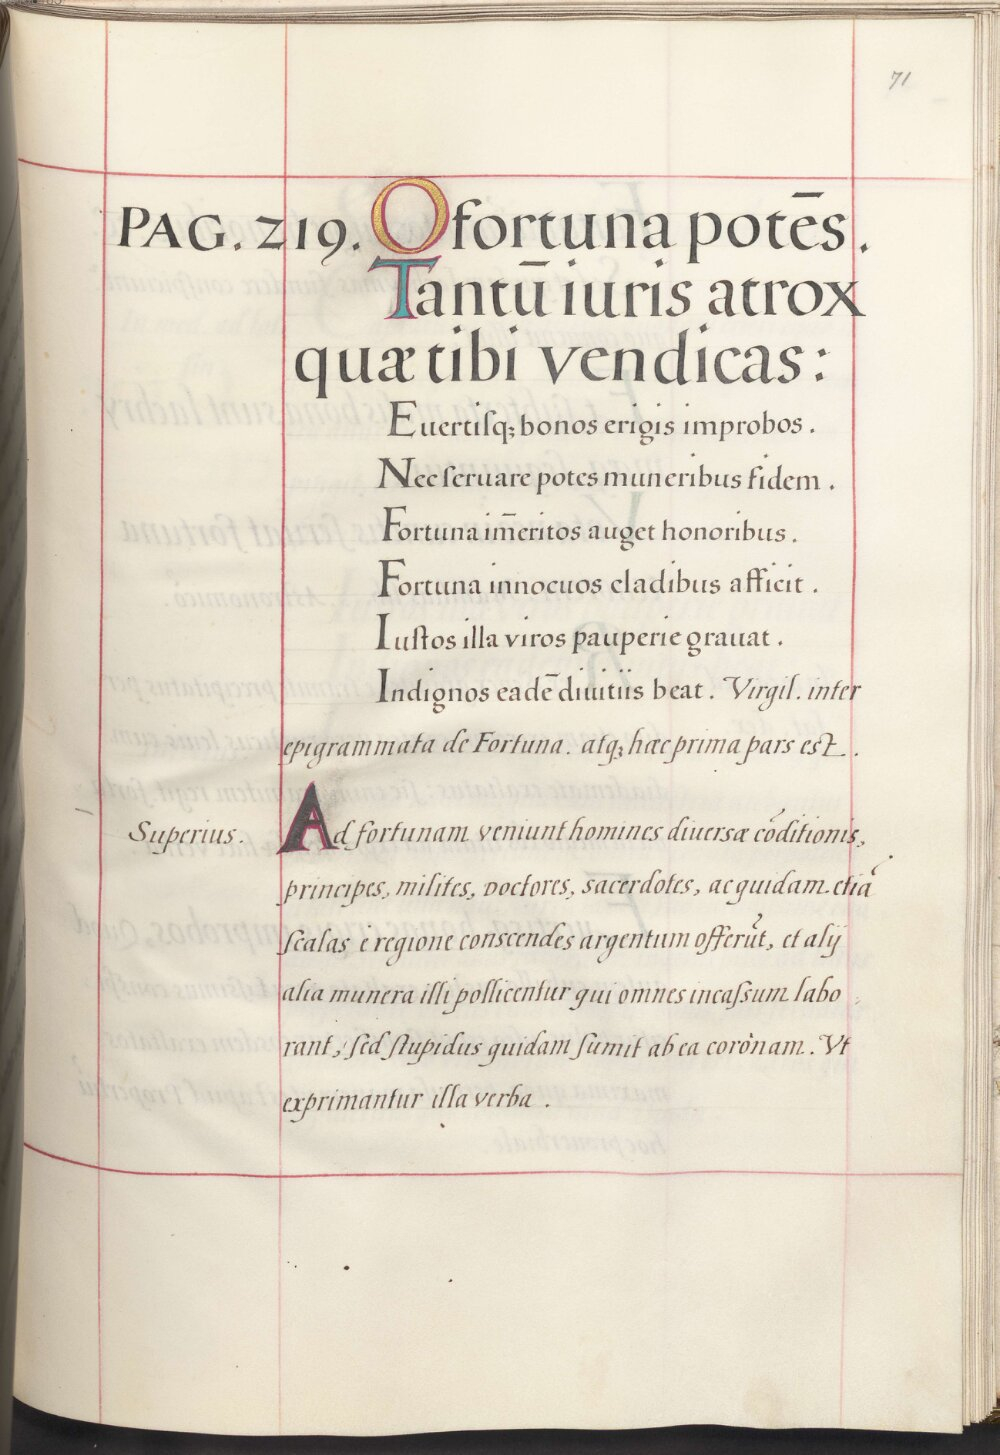 71
PAG. 219. O fortuna potēs.
Tantū iuris atrox
quæ tibi vendicas:
Euertiſq; bonos erigis improbos.
Nec ſeruare potes muneribus fidem.
Fortuna im̄eritos auget honoribus.
Fortuna innocuos cladibus afficit.
Iuſtos illa viros pauperie grauat.
Indignos eadē diuitiis beat. Virgil. inter
epigrammata de Fortuna. atq; hæc prima pars est.
Superius. Ad fortunam veniunt homines diuersæ cōditionis,
principes, milites, doctores, sacerdotes, ac quidam etiā
ſcalas è regione conscendēs argentum offerūt, et alij
alia munera illi pollicentur qui omnes incaſsum labo
rant, ſed ſtupidus quidam ſumit ab ea corònam. Vt
exprimantur illa verba.